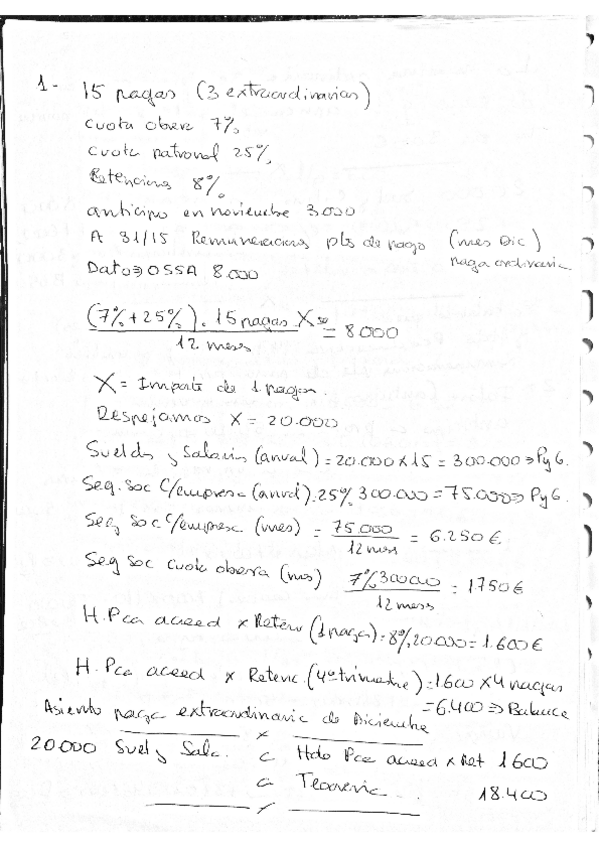 1- 15 pagas (3 extraordinarias)
cuota obrera 7%
cuota patronal 25%
Retenciones 8%
anticipo en noviembre 3000
A 31/15 Remuneraciones ptes de pago (mes Dic)
paga ordinaria
Dato⇒OSSA 8.000
(7%+25%). 15 pagas X = 8000
12 meses
X = Importe de 1 paga.
Despejamos X = 20.000
Sueldos y Salarios (anual) = 20.000 x 15 = 300.000 ⇒ PyG.
Seg. Soc C/empresa (anual). 25% 300.000 = 75.000 ⇒ PyG.
Seg Soc C/empresa (mes) = 75.000 = 6.250 €
12 meses
Seg Soc cuota obrera (mes) 7% 300000 = 1750 €
12 meses
H. Pca acreed x Reten (1 paga) = 8% 20.000 = 1.600 €
H. Pca acreed x Retenc. (4º trimestre) = 1600 x 4 pagas
= 6.400 ⇒ Balance
Asiento paga extraordinaria de Diciembre
x
20.000 Suel y Sala. a Hda Pca acreed x Ret 1600
a Tesorería... 18.400
x